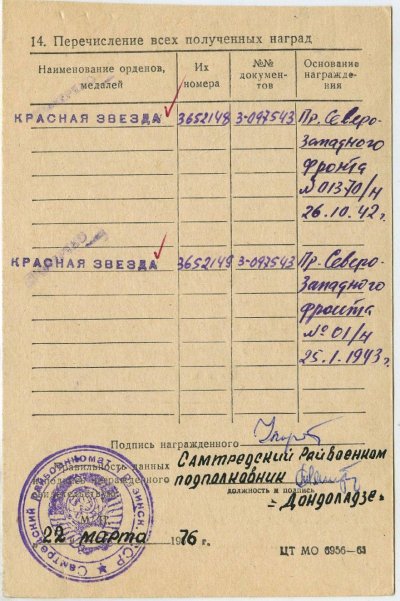 14. Перечисление всех полученных наград
Наименование орденов, медалей
Их номера
№№ документов
Основание награждения
КРАСНАЯ ЗВЕЗДА 3652148 З-097543 Пр. Северо-
Западного
фронта
№01370/н
26.10.42г.
КРАСНАЯ ЗВЕЗДА 3652149 З-097543 Пр. Северо-
Западного
фронта
№ 01/н
25.1.1943г.
Подпись награжденного
Правильность данных Самтредский Райвоенком
награжденного подполковник
должность и подпись
М.П. = Дондоладзе =
22 марта 1976 г.
ЦТ МО 6956-61